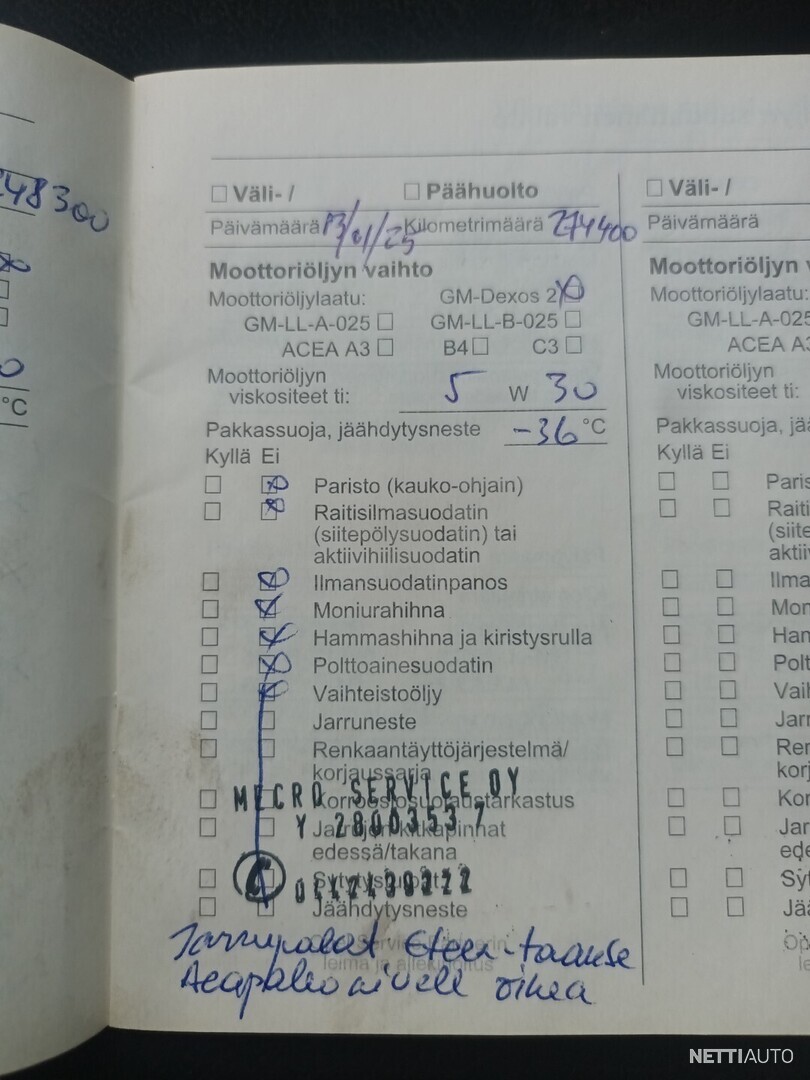 248300
°C
Väli- / Päähuolto
Päivämäärä 13/01/25 Kilometrimäärä 274400
Moottoriöljyn vaihto
Moottoriöljylaatu: GM-Dexos 2
GM-LL-A-025 GM-LL-B-025
ACEA A3 B4 C3
Moottoriöljyn
viskositeet ti: 5 W 30
Pakkassuoja, jäähdytysneste -36 °C
Kyllä Ei
Paristo (kauko-ohjain)
Raitisilmasuodatin
(siitepölysuodatin) tai
aktiivihiilisuodatin
Ilmansuodatinpanos
Moniurahihna
Hammashihna ja kiristysrulla
Polttoainesuodatin
Vaihteistoöljy
Jarruneste
Renkaantäyttöjärjestelmä/
korjaussarja
MECRO SERVICE OY
Korroosiosuojaustarkastus
Y 2800353 7
Jarrujen kitkapinnat
edessä/takana
Jäähdytysneste
Jarrupalat Eteen-taakse
leima ja allekirjoitus
oikea
Väli- /
Päivämäärä
Moottoriöljyn
Moottoriöljylaatu:
GM-LL-A-025
ACEA A3
Moottoriöljyn
viskositeet ti:
Pakkassuoja, jää
Kyllä Ei
Paris
Raiti
(siite
aktiiv
Ilma
Mon
Han
Polt
Vaih
Jarr
Ren
korj
Kor
Jar
ede
Syt
Jää
NETTIAUTO